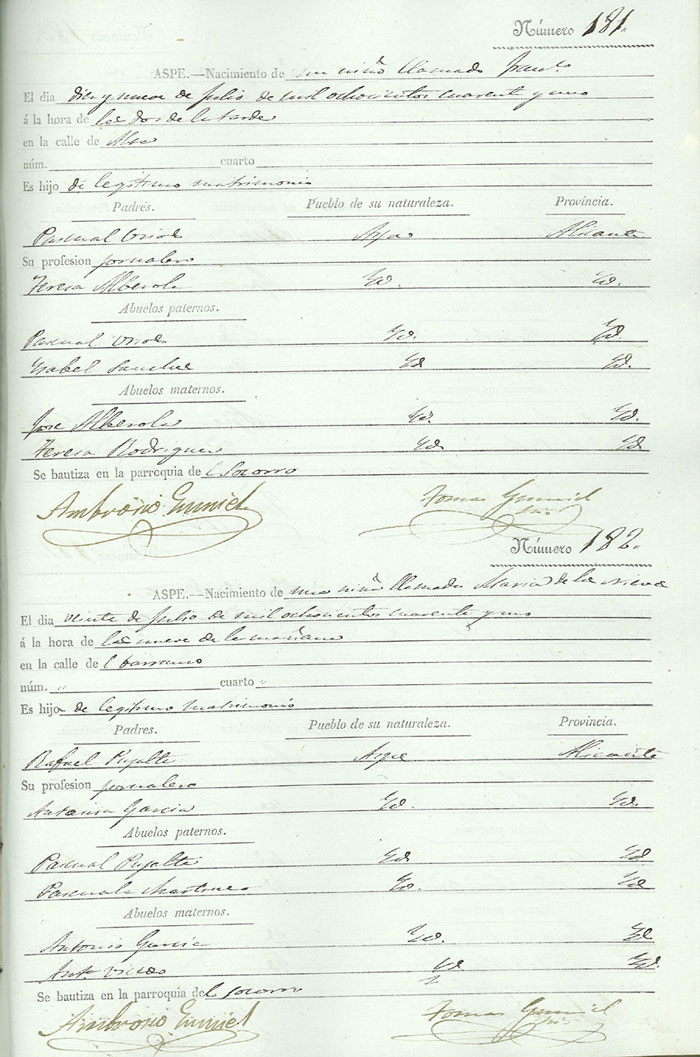 Número 181.
ASPE.—Nacimiento de un niño llamado Franco
El dia diez y nueve de Julio de mil ochocientos cuarent y uno
á la hora de las dos de la tarde
en la calle de
núm. cuarto
Es hijo de legitimo matrimonio
Padres. Pueblo de su naturaleza. Provincia.
Pascual Aspe Alicante
Su profesion jornalero
Teresa Alberola Yd. Yd.
Abuelos paternos.
Pascual Yd. Yd.
Ysabel Sanchez Yd Yd.
Abuelos maternos.
Jose Alberola Yd. Yd.
Teresa Rodriguez Yd Yd
Se bautiza en la parroquia del Socorro
Ambrosio Tomas
Número 182.
ASPE.—Nacimiento de una niña llamada Maria de las Nieves
El dia veinte de Julio de mil ochocientos cuarenta y uno
á la hora de las nueve de la mañana
en la calle del barranco
núm. " cuarto "
Es hija de legitimo matrimonio
Padres. Pueblo de su naturaleza. Provincia.
Rafael Pujalte Aspe Alicante
Su profesion jornalero
Antonia Garcia Yd. Yd.
Abuelos paternos.
Pascual Pujalte Yd Yd
Pascuala Martinez Yd. Yd
Abuelos maternos.
Antonio Garcia Yd. Yd
Anta. Yd Yd.
Se bautiza en la parroquia del Socorro
Ambrosio Tomas